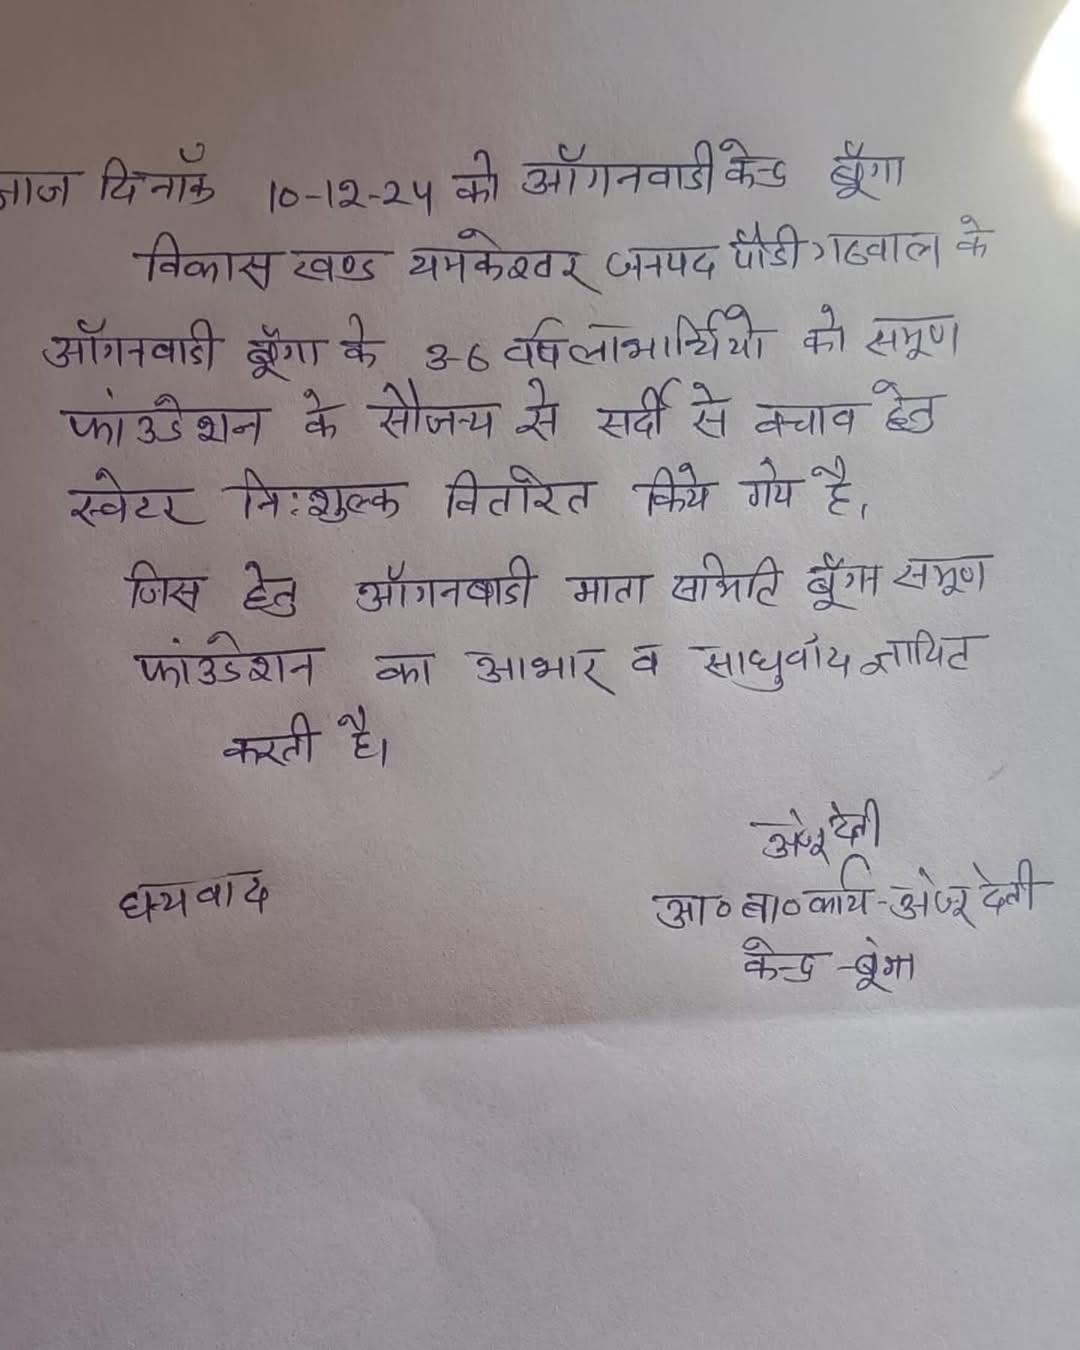 आज दिनाँक 10-12-24 को आँगनवाडी केन्द्र बूँगा
विकास खण्ड यमकेश्वर जनपद पौडी गढवाल के
आँगनवाडी बूँगा के 3-6 वर्ष लाभार्थियो को समूण
फांउडेशन के सौजन्य से सर्दी से बचाव हेतु
स्वेटर नि:शुल्क वितरित किये गये है,
जिस हेतु आँगनबाडी माता समिति बूँगा समूण
फांउडेशन का आभार व साधुवाद ज्ञापित
करती है।
अंजू देवी
धन्यवाद
आ० बा० कार्य - अंजू देवी
केन्द्र - बूंगा